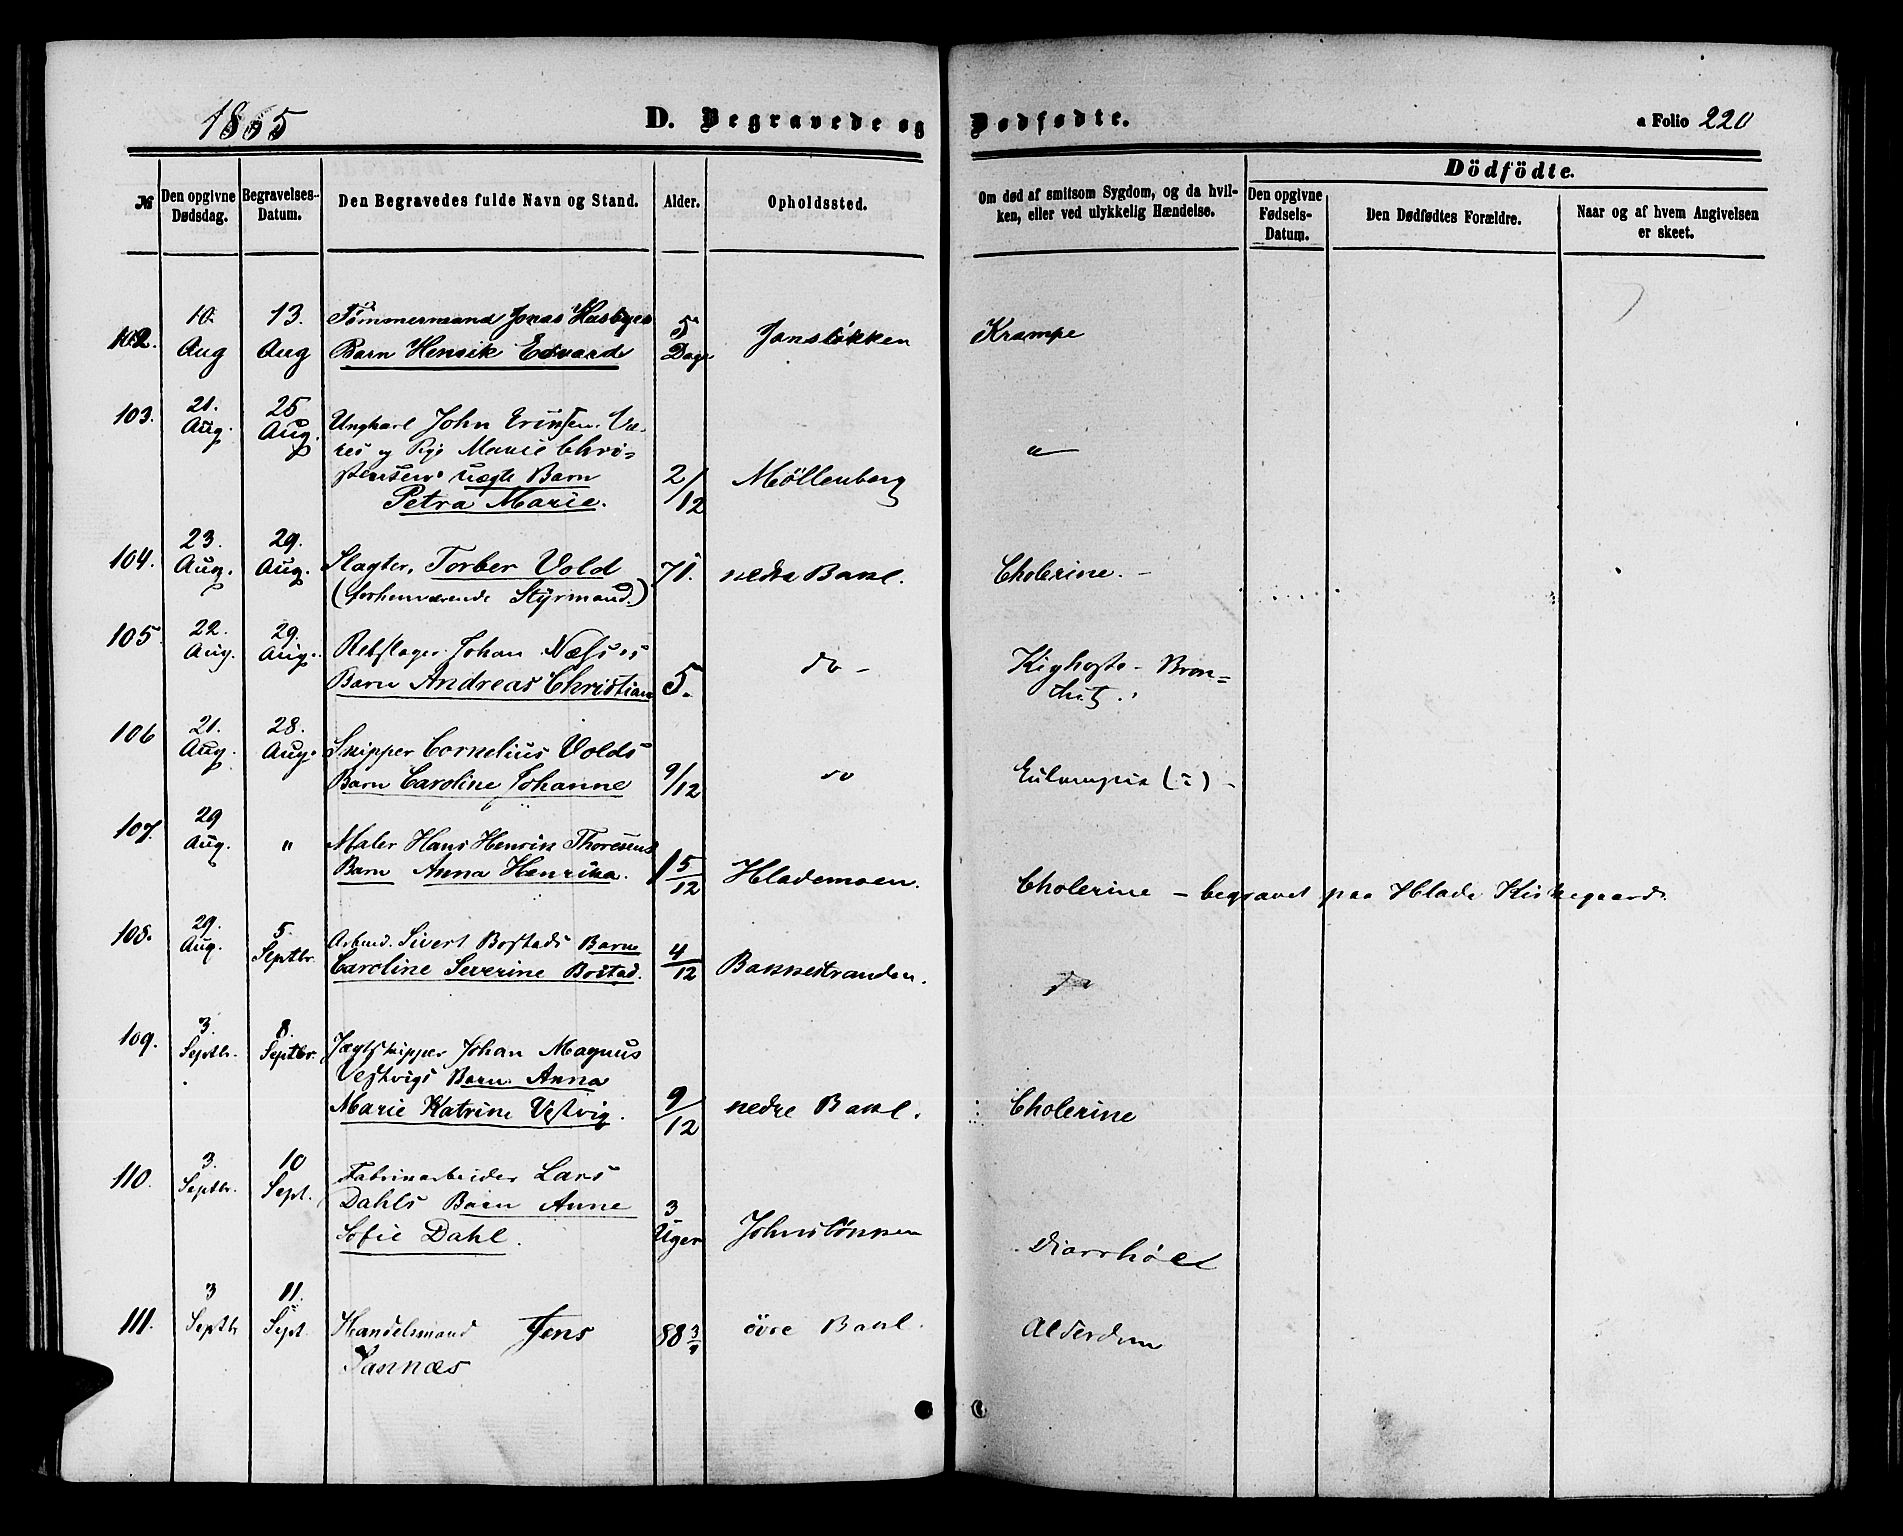 1865
D. Begravede og Dødfødte.
a Folio 220
Dödfödte.
№
Den opgivne Dødsdag.
Begravelses-Datum.
Den Begravedes fulde Navn og Stand.
Alder.
Opholdssted.
Om død af smitsom Sygdom, og da hvil-
ken, eller ved ulykkelig Hændelse.
Den opgivne Fødsels-Datum.
Den Dødfødtes Forældre.
Naar og af hvem Angivelsen
er skeet.
102. 10. Aug 13. Aug Tømmermand Jonas Husbyes
Barn Henrik Edvard 5 Dage Jansløkken Krampe
103. 21. Aug. 25 Aug. Ungkarl John
og Pige Marie Chri-
stensens uægte Barn
Petra Marie. 2/12 Møllenberg "
104. 23. Aug. 29. Aug. Slagter, Torber Vold 71. nedre Bakl. Cholerine. -
(forhenværende Styrmand.)
105 22. Aug. 29. Aug. Rebslager Johan Næss's
Barn Andreas Christian 5. do - Kighoste - Bron=
chit.
106 21. Aug. 28. Aug. Skipper Cornelius Volds
Barn Caroline Johanne 9/12 do
107. 29 Aug. " Maler Hans Henrik Thoresens
Barn Anna Henrika. 1 5/12 Hlademoen. Cholerine - begravet paa Hlade Kirkegaard.
108. 29. Aug. 5. Septbr. Arbmd. Sivert Bostads Barn
Caroline Severine Bostad. 4/12 Bakkestranden.
109. 3. Septbr. 8. Septbr. Jægtskipper Johan Magnus
Vestvigs Barn Anna
Marie Katrine Vestvig. 9/12 nedre Bakl. Cholerine
110. 3. Septbr. 10 Sept. Fabrikarbeider Lars
Dahls Barn Anne
Sofie Dahl. 3 Uger Johnsløkken Diarrhöe
111. 3 Septbr 11. Sept. Handelsmand Jens 88 3/4 övre Bakl. Alderdom
Sannæs